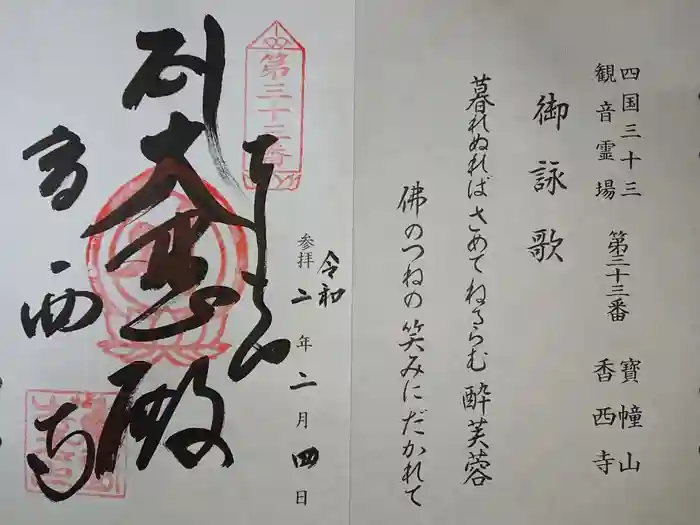 四国三十三
観音霊場
第三十三番
寶幢山
香西寺
御詠歌
暮れぬればさめてねむらむ酔芙蓉
佛のつねの笑みにだかれて
第三十三番
令和
参拝二年二月四日
大悲殿
香西寺